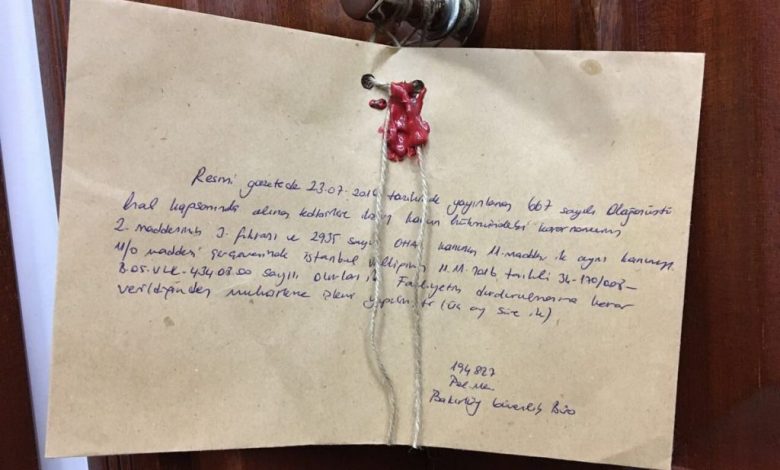 Resmi gazetede 23-07-2016 tarihinde yayınlanan 667 sayılı Olağanüstü
hal kapsamında alınan tedbirlere ilişkin kanun hükmündeki kararnamenin
2. maddesinin 3. fıkrası ve 2935 sayılı OHAL kanunun 11. maddesi ile aynı kanunun
11/O maddesi çerçevesinde istanbul valiliğinin 11.11.2016 tarihli 34-170/008-
sayılı olurları ile Faaliyetin durdurulmasına karar
verildiğinden mühürleme işlemi yapılmıştır (üç ay süre ile)
194827
Pol. Me.
Bakırköy Güvenlik Büro